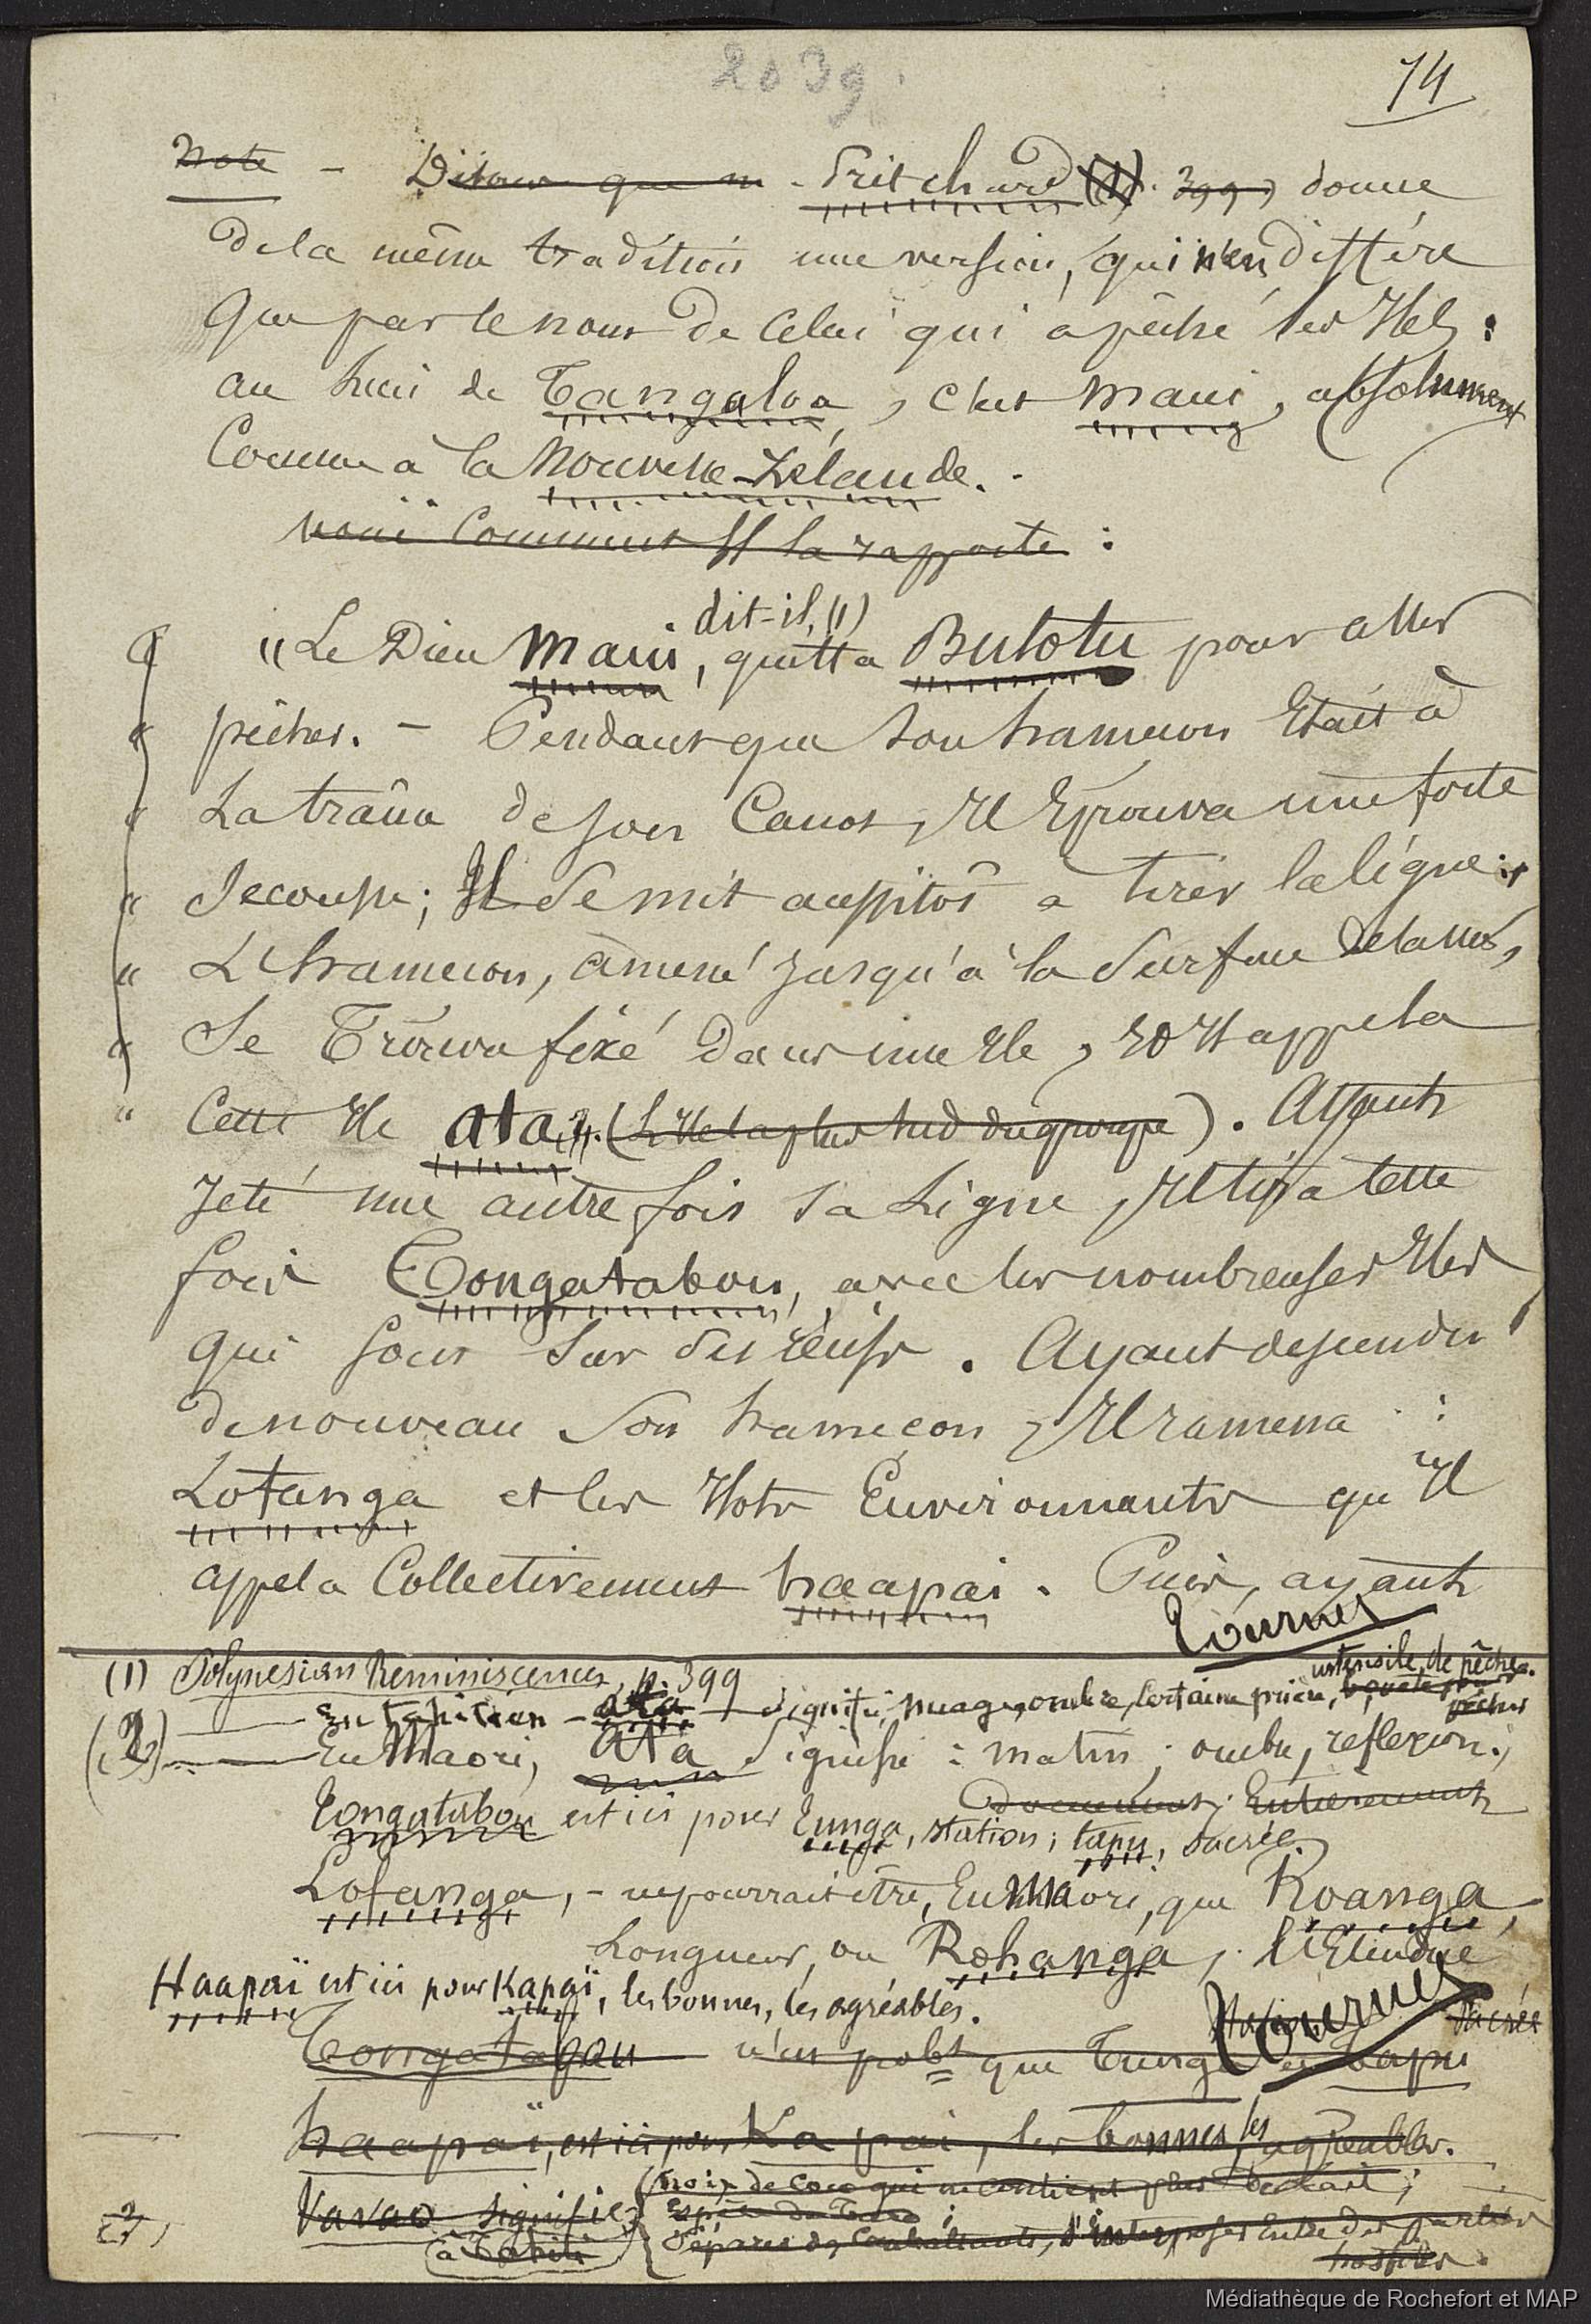 2039.
74
Note - Disons que m. Pritchard (1) p. 399, donne
de la même tradition une version, qui n'en diffère
que par le nom de celui qui a pêché les Iles :
au lieu de Tangaloa, c'est Maui, absolument
comme à la Nouvelle-Zélande.
voici comment Il la rapporte :
dit-il, (1)
" Le Dieu Maui, quitta Bulotu pour aller
" pêcher. - Pendant que son hameçon était à
" La traîne de son Canot, Il Eprouva une forte
" Secousse ; Il se mit aussitôt à tirer la ligne :
" L'hameçon, amené jusqu'à la Surface de la mer,
" Se Trouva fixé dans une Ile, et Il appela
" Cette Ile Ata, (2). (L'Ile la plus sud du groupe). Ayant
Jeté une autre fois sa Ligne, Il tira cette
fois Tongatabou, avec les nombreuses Iles
qui sont sur ses récifs. Ayant descendu
de nouveau son hameçon, Il ramena :
Lofanga et les Ilots Environnants qu'Il
appela Collectivement haapai. Puis, ayant
Tournez
(1) Polynesian Reminiscences, p. 399
ustensile de pêche.
En tahitien - ata - signifie, nuage, ombre, certaine prière,
pêcher
(2) En Maori, Ata Signifie : matin ; ombre, reflexion ;
doucement ; Entièrement
Tongatabou est ici pour Tunga, station ; tapu, sacrée.
Lofanga, - ne pourrait être, En Maori, que Roanga,
Longueur, ou Rohanga, l'Etendue
Haapaï est ici pour Kapaï, les bonnes, les agréables.
Tournez
sacrée
Tongatabou n'est probt que Tunga et tapu
haapaï, est ici pour Ka pai, les bonnes, les agréables.
noix de Coco qui ne contient plus de lait ;
Vavao signifie
Espèce de Taro ;
à Tahiti
séparer des Combattants, s'interposer Entre des parties
hostiles.